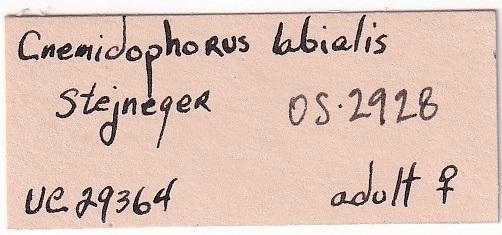 Cnemidophorus labialis
Stejneger OS·2928
UC 29364 adult ♀